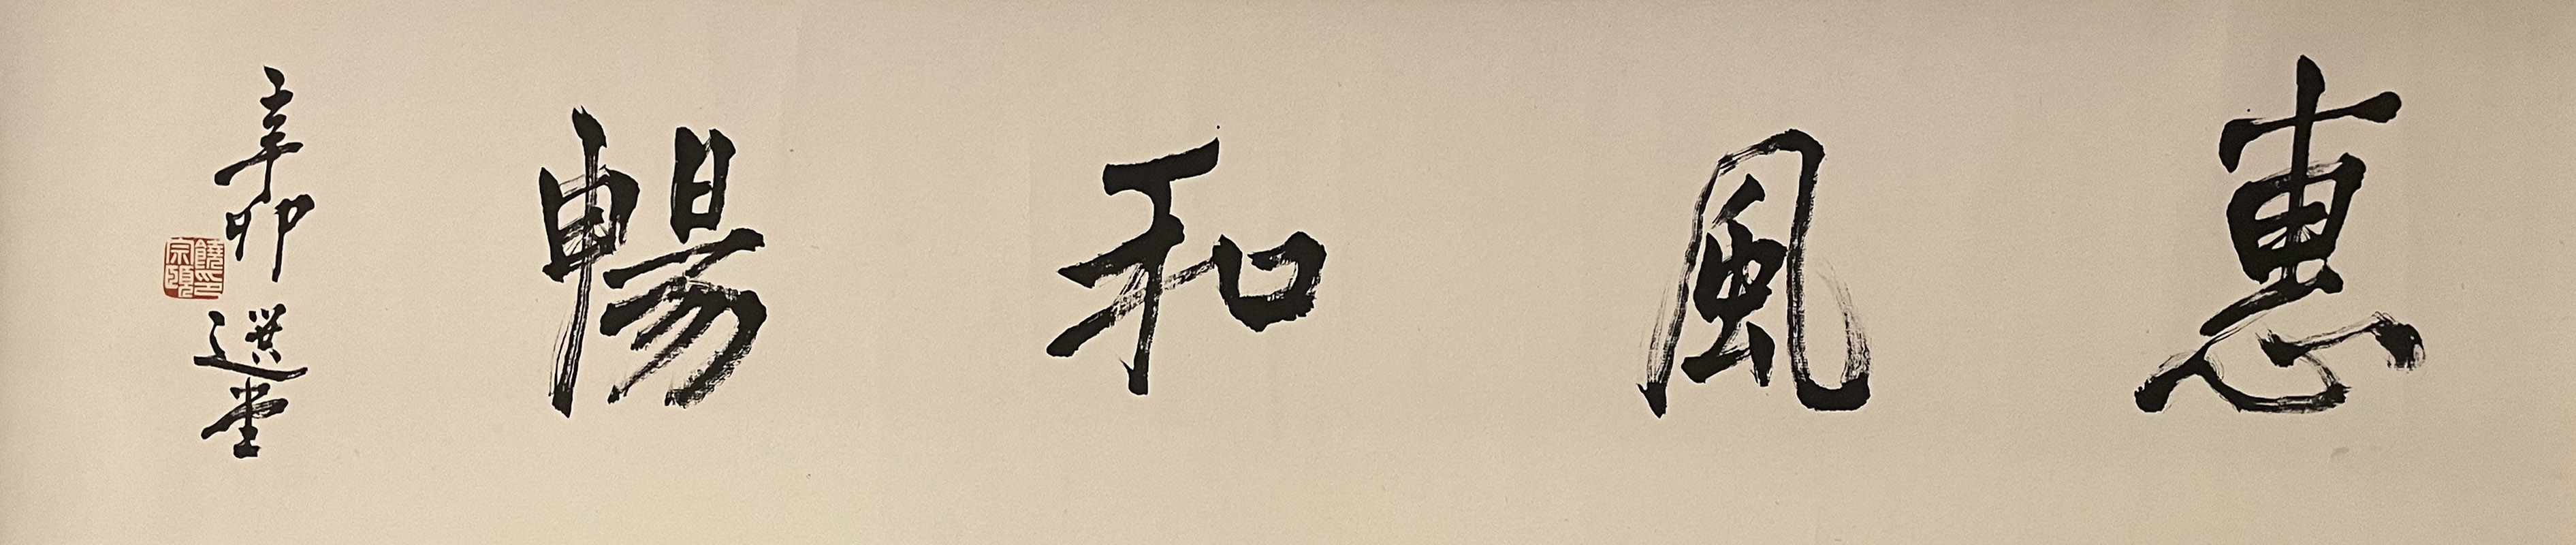 惠風和暢
辛卯 選堂
饒宗頤印